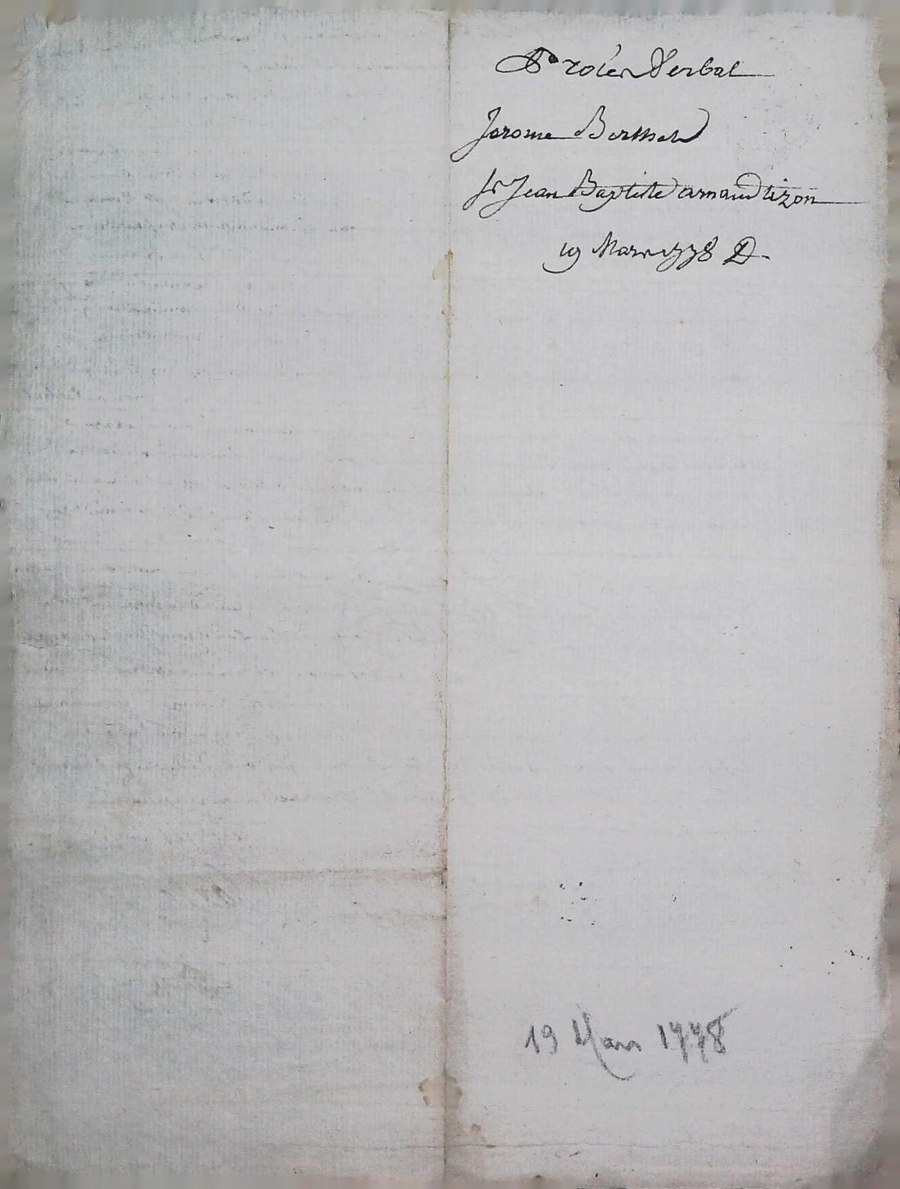 Procés Verbal
Jerome Berthel
Sr Jean Baptiste armand tizon
19 Mars 1778 D.
19 Mars 1778